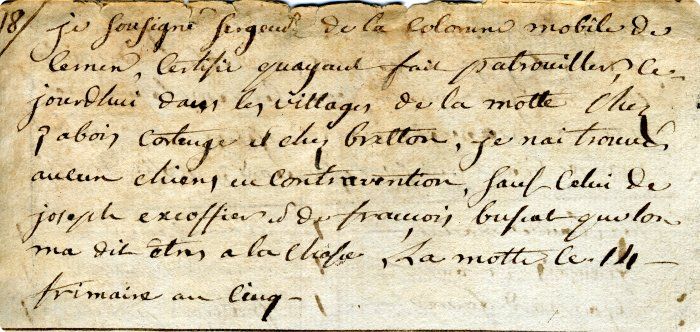 18/ je Sousigné Sergent de la Colonne mobile de
lemen, Certifie quayant fait patrouiller, Ce
jourdhui dans les villages de la motte Chez
jabois et chez bretton, je nai trouvés
aucun chiens en Contravention, Sauf Celui de
joseph excoffier & de françois buscat que lon
ma dit Etres a la Chasse, La motte le 14
frimaire an Cinq -